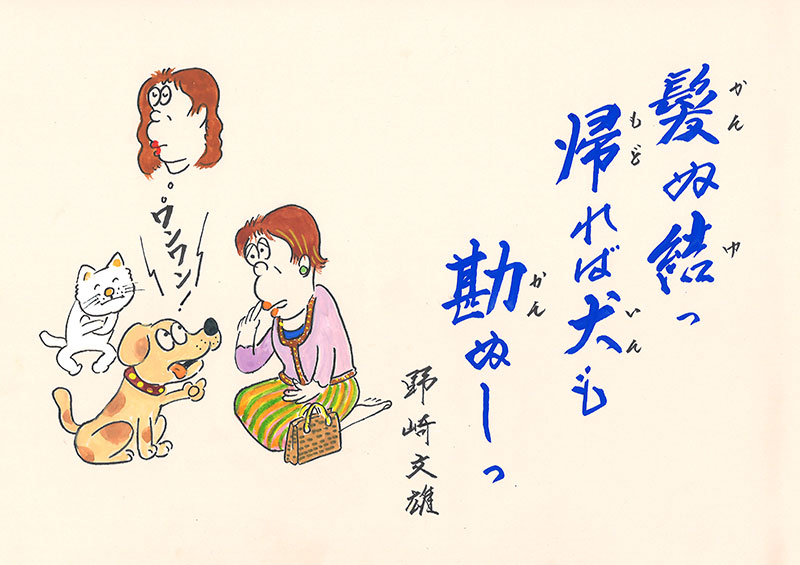 髪ぬ結っ
かん
ゆ
帰れば犬も
もど
いん
勘ぬしっ
かん
野崎文雄
ワンワン!